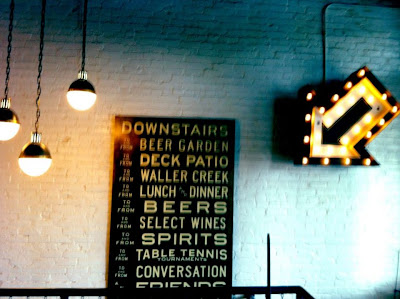 DOWNSTAIRS
TO AND FROM BEER GARDEN
TO AND FROM DECK PATIO
TO AND FROM WALLER CREEK
TO AND FROM LUNCH AND DINNER
TO AND FROM BEERS
TO AND FROM SELECT WINES
TO AND FROM SPIRITS
TO AND FROM TABLE TENNIS
TOURNAMENTS
TO AND FROM CONVERSATION
FRIENDS